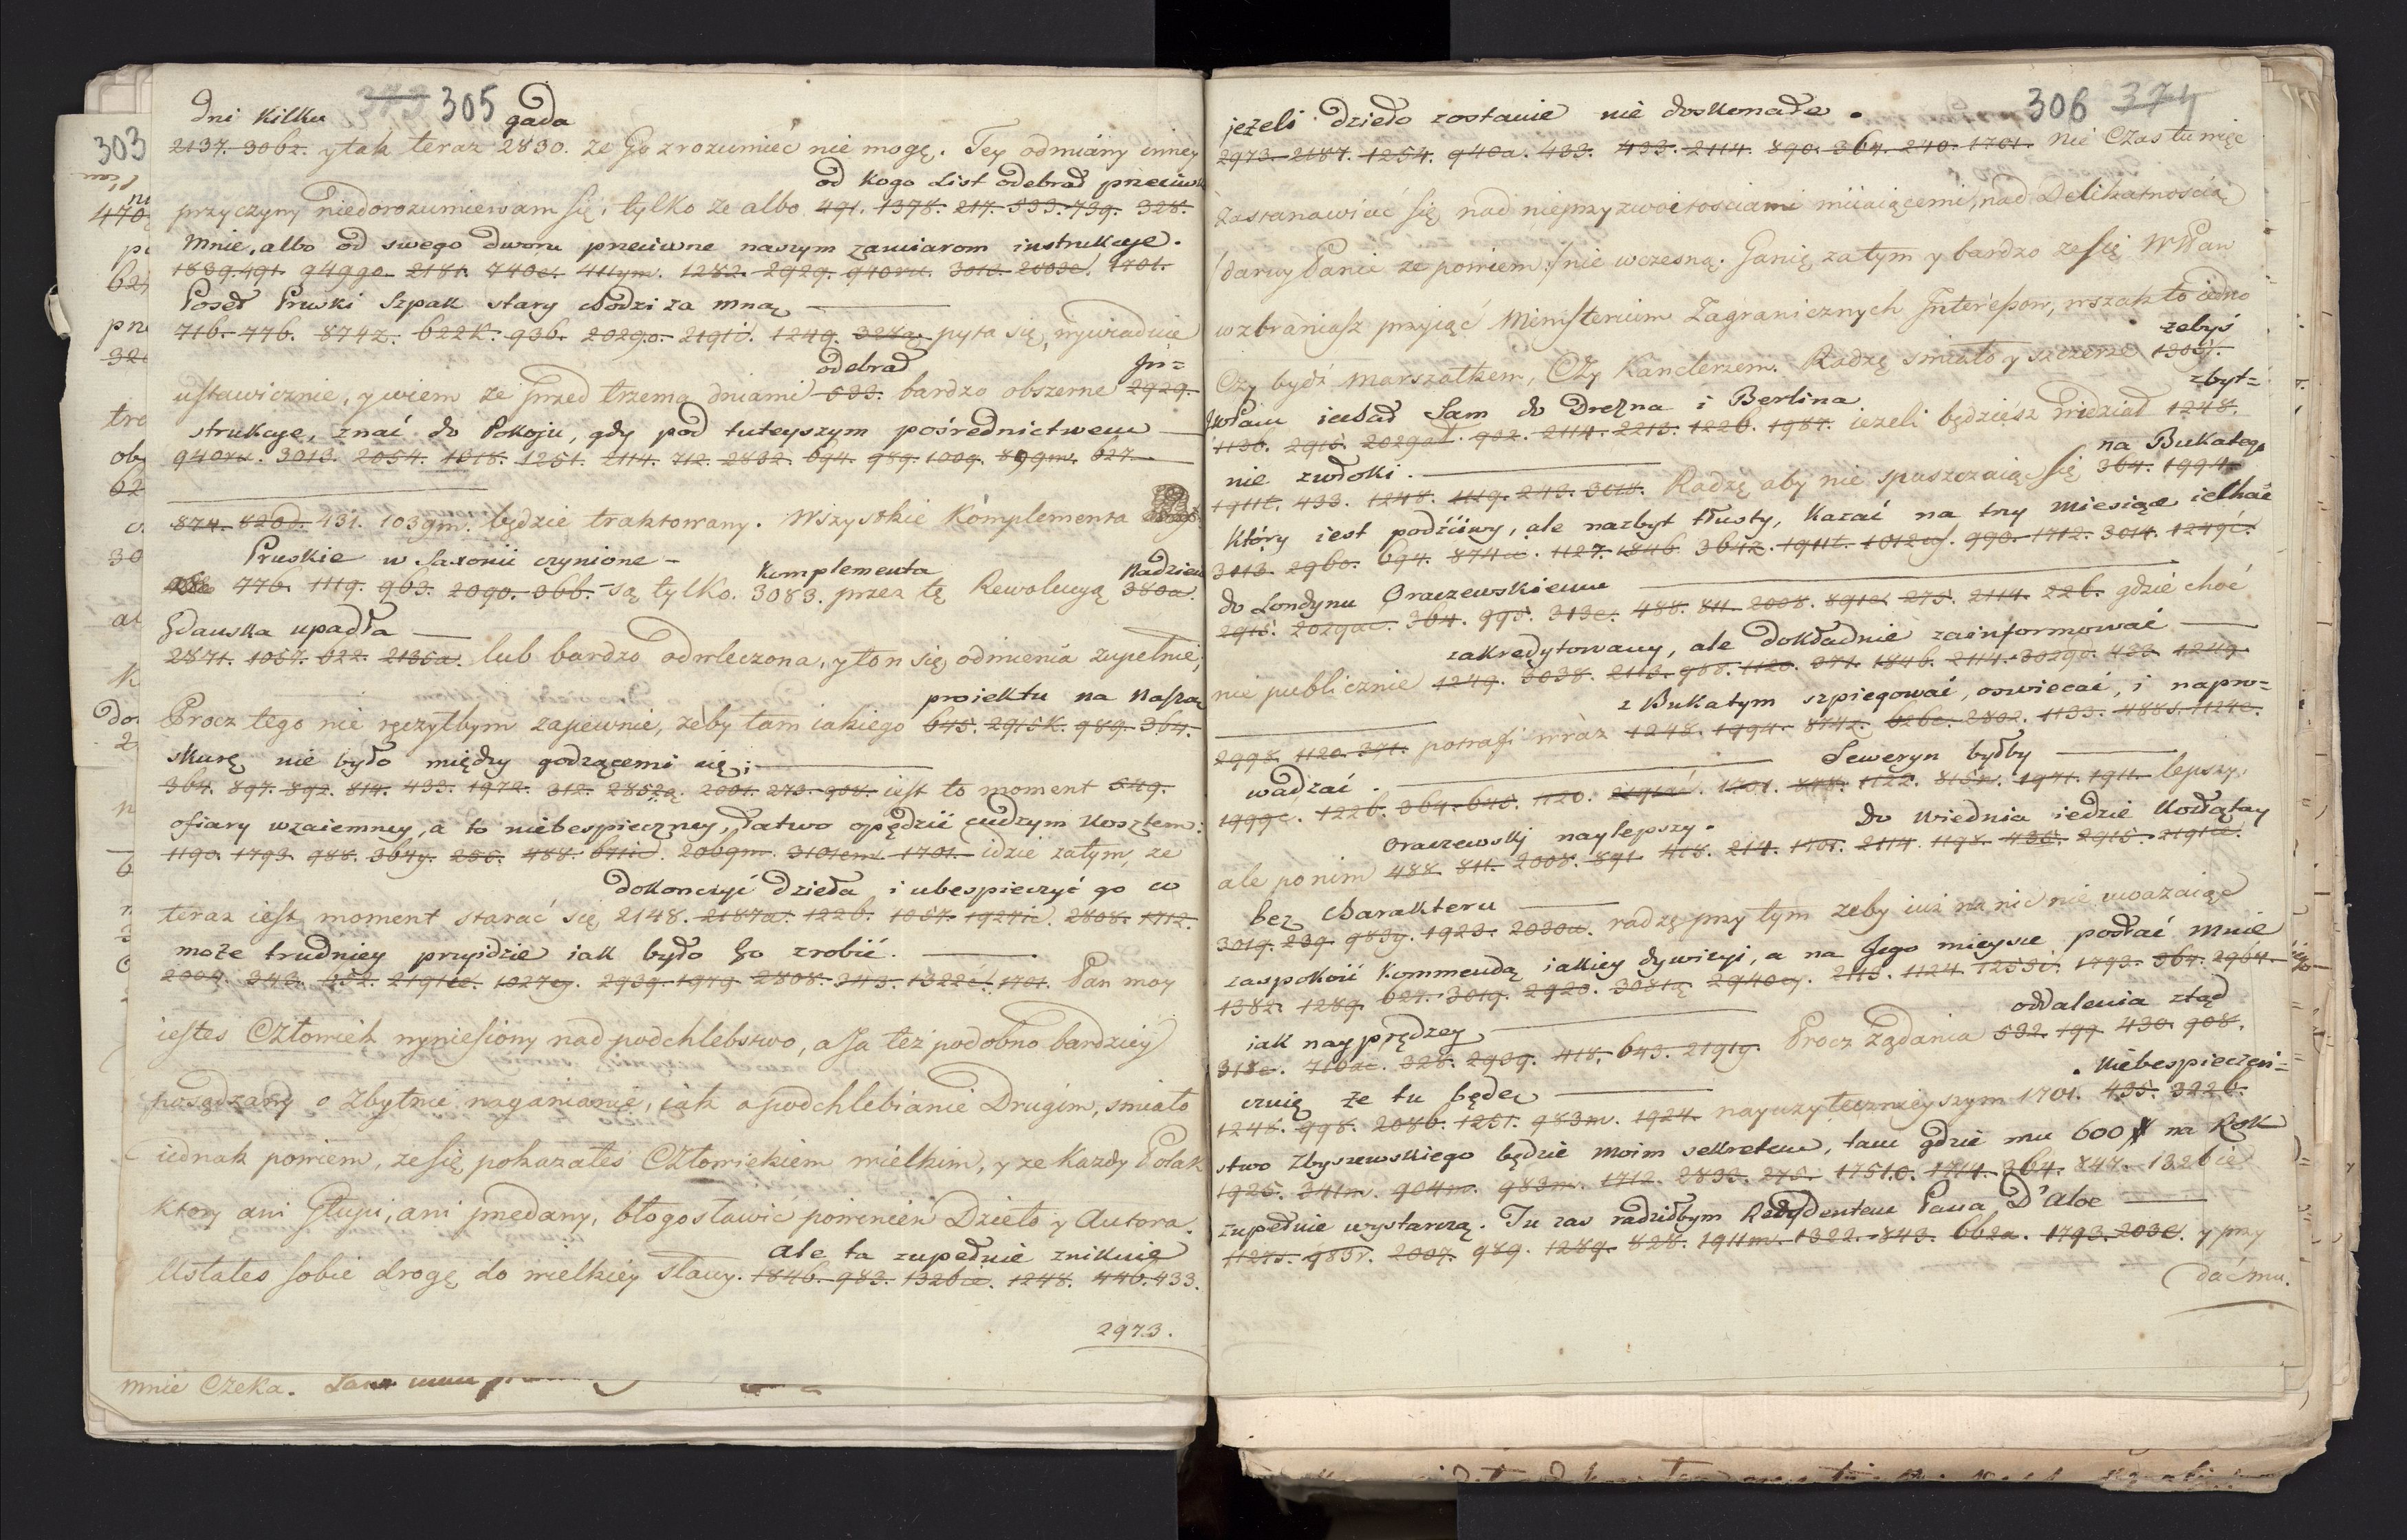 373 305
dni kilku gada
2137. 306z. ytak teraz 2830. ze go zrozumieć nie mogę. Tey odmiany inney
od kogo List odebrał przeciwko
przyczyny niedorozumiewam się, tylko ze albo 491. 1378. 217. 533. 739. 328.
mnie, albo od swego dworu przeciwne naszym zamiarom instrukcye.
1839. 491. 949go. 2181. 740e. 411ym. 1282. 2929. 940ru. 3013. 2003e. 1701.
Poseł Pruski Szpak stary chodzi za mną
716. 776. 874z. 622k. 936. 2029o. 219ić. 1249. 328ą. pyta się, wywiaduie
odebrał In=
ustawicznie, y wiem ze przed trzema dniami 533. bardzo obszerne 2929.
strukcye, znać do Pokoju, gdy pod tuteyszym pośrednictwem
940ru. 3013. 2054. 1318. 1251. 2114. 712. 2832. 694. 989. 1009. 899m. 627.
874. 820d. 431. 1039m. będzie traktowany. Wszystkie komplementa
Pruskie w Saxonii czynione - Komplementa Nadzieia
776. 1119. 963. 2090. 366. są tylko. 3083. przez tę Rewolucyą 380a.
Gdańska upadła
2871. 1057. 622. 2135a. lub bardzo odwleczona, y ton się odmienia zupełnie,
projektu na Naszą
Procz tego nie ręczyłbym zapewnie, żeby tam iakiego 645. 2915k. 989. 364.
skurę nie było między godzącemi się;
364. 897. 892. 814. 433. 1972. 312. 2852ą. 2001. 273. 908. iest to moment 549.
ofiary wzaiemney, a to niebespieczney, łatwo opędzić cudzym kosztem:
1190. 1793. 988. 364y. 256. 488. 671ić. 2069m. 3101em. 1701. idzie zatym, ze
dokończyć dzieła, i ubespieczyć go co
teraz iest moment starać się 2148. 2187a. 1226. 1057. 1927ić. 2808. 1712.
może trudniey przyidzie iak było Go zrobić.
2009. 343. 652. 2191ie. 1027ey. 2939. 1979. 2808. 343. 1322ć. 1701. Pan moy
iestes Człowiek wyniesiony nad podchlebstwo, a Ja też podobno bardziey
posądzany o zbytnie naganianie, iak o podchlebianie Drugim, smiało
iednak powiem, że się pokazałeś Człowiekiem wielkim, y ze każdy Polak
ktory ani głupi, ani przedany, błogosławić powinien Dzieło y Autora.
ale ta zupełnie zniknie
Usłałeś sobie drogę do wielkiey sławy. 1846. 983. 1326ie. 1248. 446. 433.
2973.
mnie Czeka.
306 374
jeżeli dzieło zostanie nie doskonałe.
2973. 2187. 1254. 940a. 433. 433. 2114. 890. 364. 240. 1701. nie Czas tu mię
Zastanawiać się nad nieprzyzwoitościami miiaiącemi, nad Delikatnoscią
/daruy Panie ze powiem:/ nie wczesną. Ganię zatym y bardzo ze się WPan
wzbraniasz przyiąć Ministerium Zagranicznych Interessow, wszak to iedno
żebyś
Czy bydź Marszałkiem, Czy Kanclerzem. Radzę smiało y szczerze 1303ś.
WPan iechał Sam do Drezna i Berlina zbyt=
1136. 2915. 2029ał. 902. 2114. 2213. 1226. 1987. ieżeli będziesz widział 1248.
nie zwłoki. na Bukatego
1911t. 433. 1248. 1119. 243. 3018. Radzę aby nie spuszczaiąc się 364. 1994.
który iest podściwy, ale nazbyt tłusty, kazać na trzy miesiące iechać
3013. 2960. 694. 874a. 1127. 1846. 364z. 1911t. 1012uy. 990. 1712. 3014. 1249ć.
do Londynu Oraczewskiemu
2915. 2029ać. 364. 995. 313e. 488. 811. 2008. 891e. 275. 2114. 226. gdzie choć
zakredytowany, ale dokładnie zainformować
nie publicznie 1249. 3038. 2113. 988. 1120. 371. 1846. 2114. 3029a. 433. 1249.
z Bukatym szpiegować, oswiecać, i napro=
2998. 1120. 371. potrafi wraz 1248. 1994. 874z. 626e. 2802. 1133. 488s. 1124e.
wadzać. Seweryn byłby
1999e. 1226. 364. 645. 1120. 2191ać. 1701. 848. 1122. 815n. 1971. 1911. lepszy,
Oraczewskj naylepszy. do Wiednia iedzie Kołłątay
ale po nim 488. 811. 2008. 891. 418. 214. 1701. 2114. 1198. 436. 2915. 2191ie.
bez Charakteru
3019. 239. 983y. 1923. 2030u. radzę przy tym zeby iuż na nic nie uważaiąc
zaspokoić kommendą iakiey dywizyi, a na Jego mieysce posłać mnie
1382. 1289. 627. 3019. 2920. 3081ą. 2940ey. 2113. 1124. 1253i. 1793. 364. 2964.
iak nayprędzey oddalenia ztąd
313e. 716ać. 328. 2939. 418. 643. 2191y. Procz żądania 532. 199. 430. 908.
czuię że tu będę Niebespieczeń=
1248. 998. 2086. 1251. 983m. 1924. nayużytecznieyszym 1701. 435. 3226.
stwo Zbyszewskiego będzie moim sekretem, tam gdzie mu 600 # na Rok
1925. 341m. 904m. 983m. 1712. 2833. 275. 1751.0. 1714. 364. 847. 1326ie
zupełnie wystarczą. Tu zas radziłbym Rezydentem Pana D'Aloe
1127s. 985r. 2007. 989. 1289. 828. 1911m. 1322. 843. 662a. 1793. 203e. y przy
dać mu.